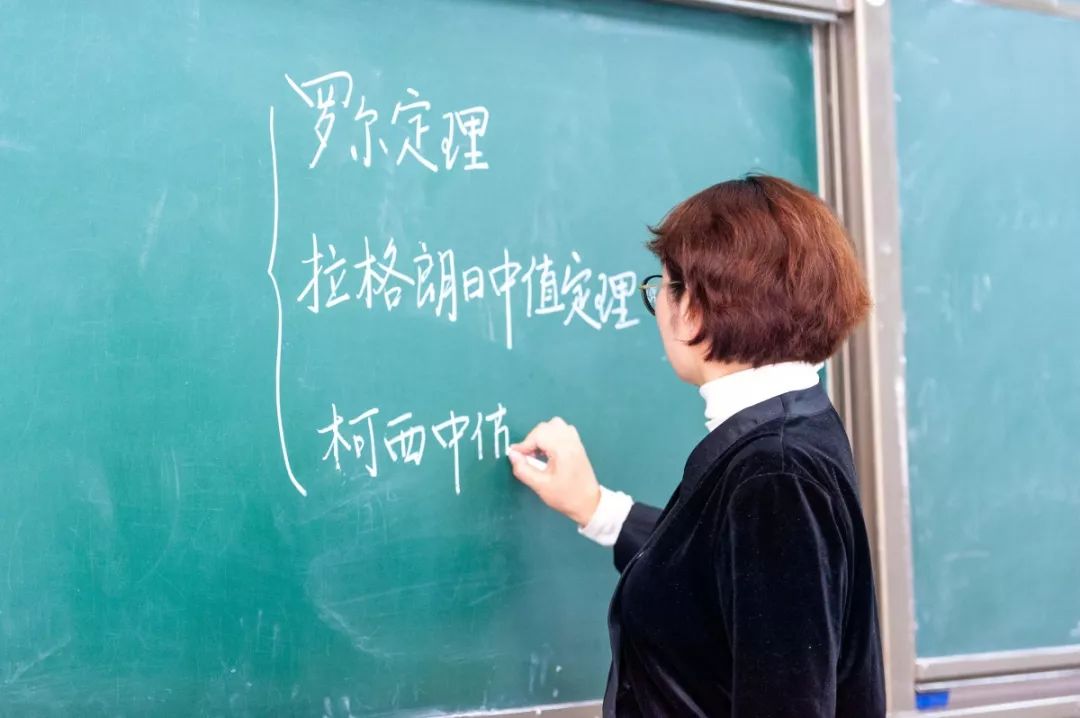 罗尔定理
拉格朗日中值定理
柯西中